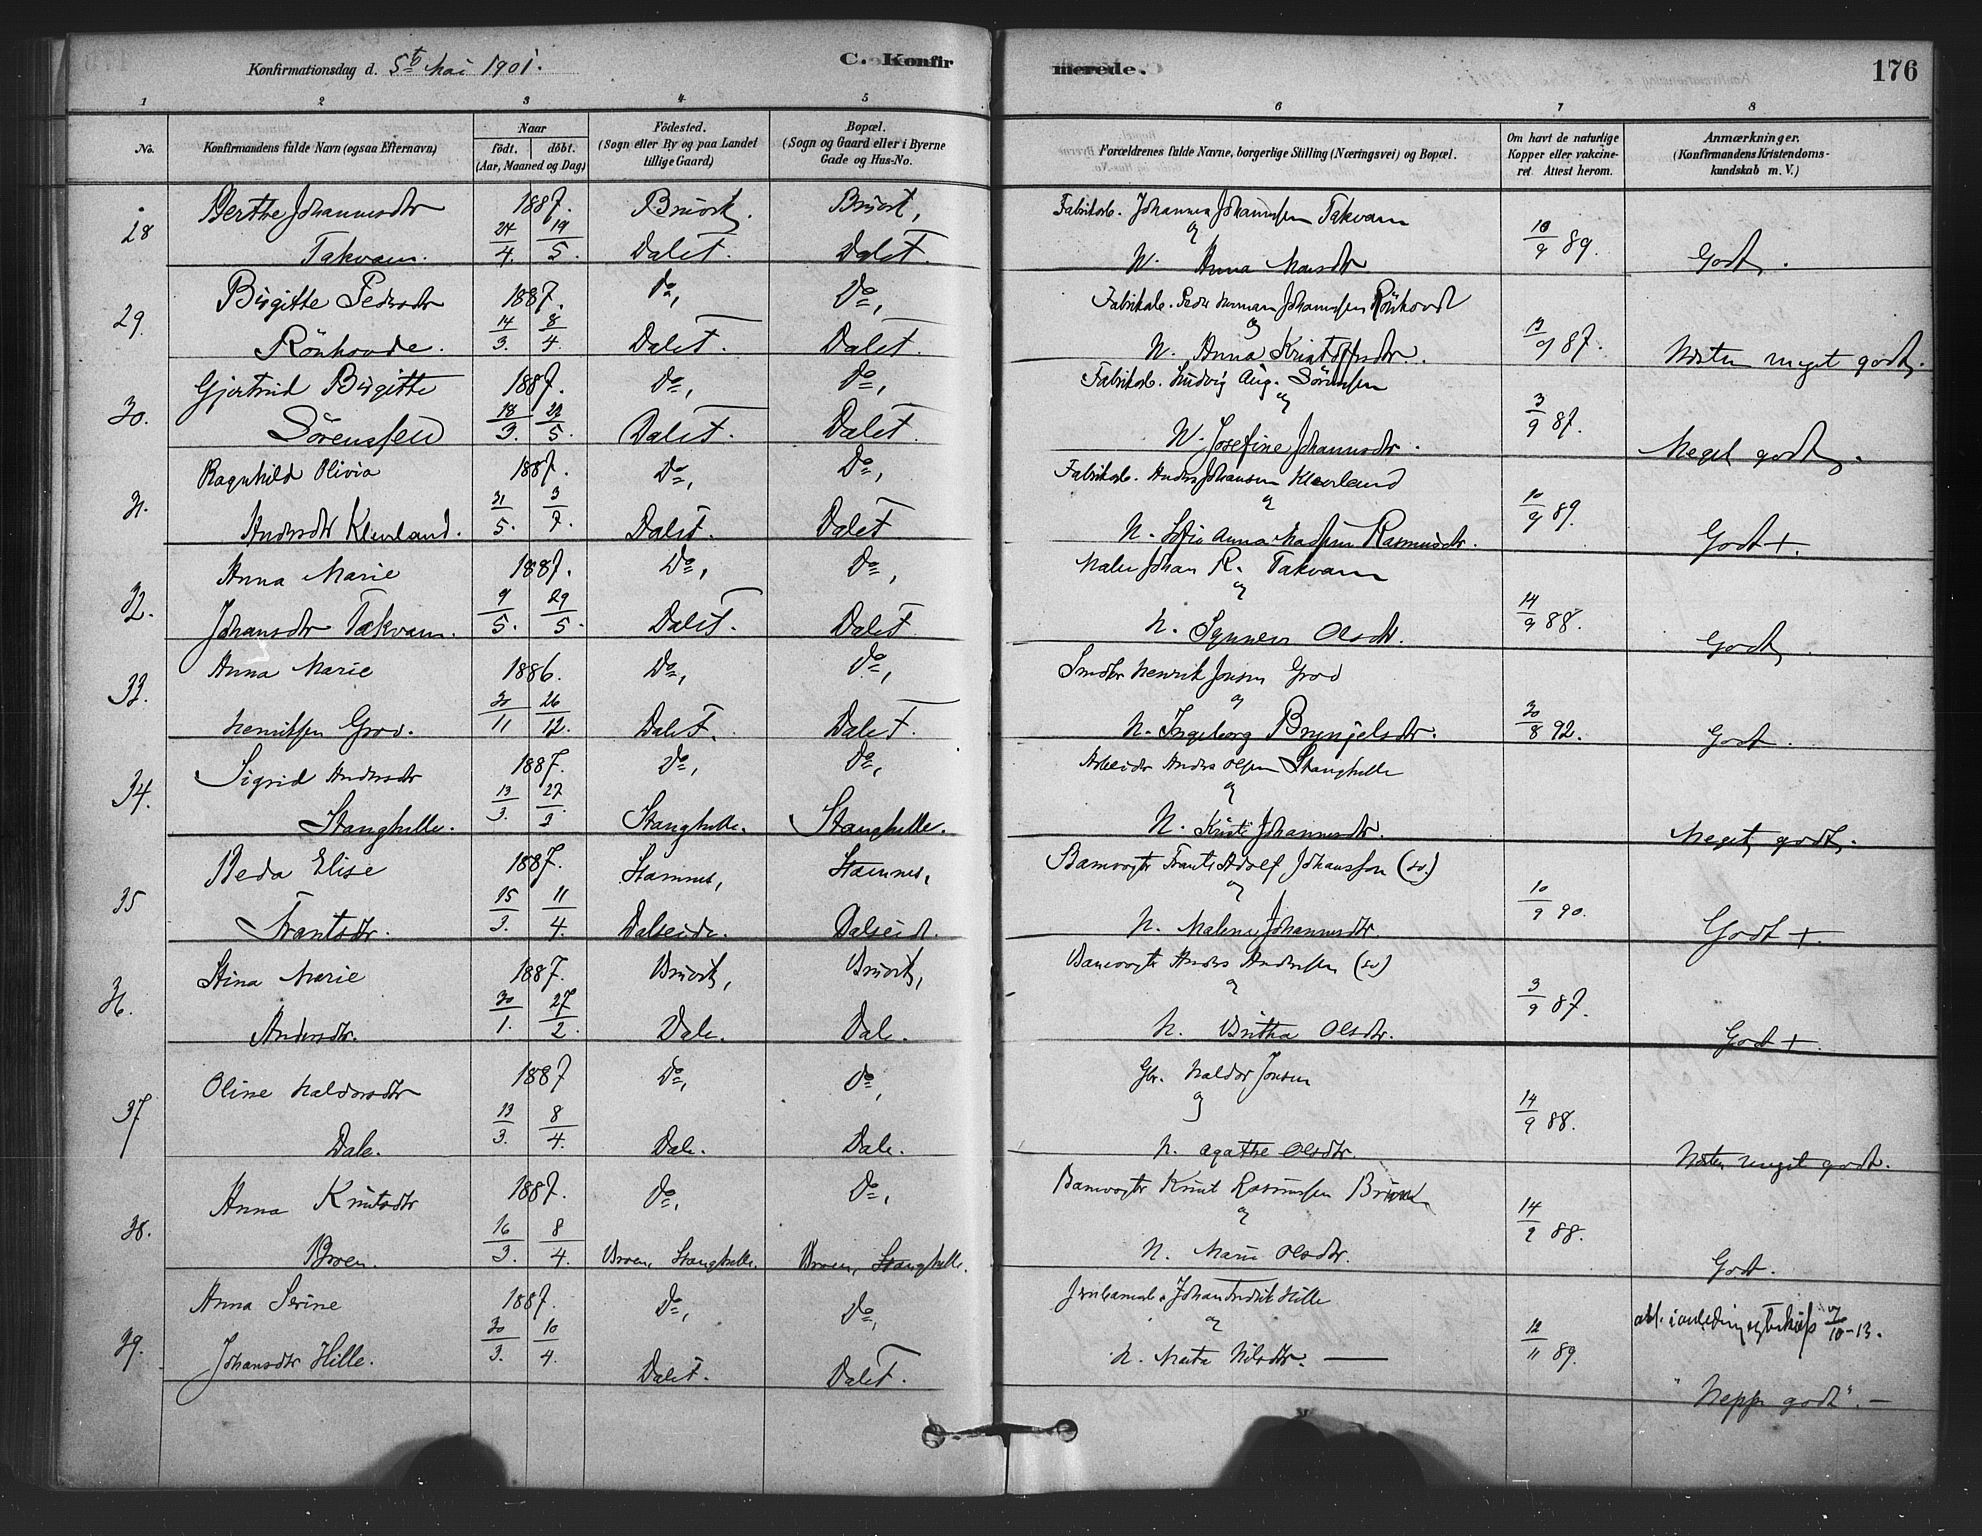 Konfirmationsdag d. 5te Mai 1901. C. Konfirmerede. 176
1 2 3 4 5 6 7 8
No. Konfirmandens fulde Navn (ogsaa Efternavn) Naar født. døbt. (Aar, Maaned og Dag) Födested. (Sogn eller By og paa Landet tillige Gaard) Bopæl. (Sogn og Gaard eller i Byerne Gade og Hus-No. Forældrenes fulde Navne, borgerlige Stilling (Næringsvei) og Bopæl. Om havt de naturlige Kopper eller vakcineret Attest herom. Anmærkninger, (Konfirmandens Kristendomskundskab m. V.)
28 Berthe Johannesdtr 1887. Bruvik, Bruvik, Fabrikarb. Johannes Johannessen Takvam
og
Takvam. 24/4. 19/5. Dalet. Dalet. H. Anna Monsdtr 10/9 89. Godt.
29. Birgitte Pedersdtr 1887. Do, Do, Fabrikarb. Peder Herman Johannessen Rönhovd
og
Rönhovde. 14/3. 8/4. Dalet. Dalet. H. Anna Kristoffsdtr. 13/9 87. Næsten meget godt.
30. Gjertrud Birgitte 1887. Do, Do, Fabrikarb. Ludvig Aug. Sörensen
og
Sörensen 18/3. 22/5. Dalet. Dalet. H. Josefine Johannesdtr. 3/9 87. Meget godt.
31. Ragnhild Olivia 1887. Do, Do, Fabrikarb. Anders Johansen Kleveland
og
Andersdtr Kleveland. 31/5. 3/7. Dalet. Dalet H. Sofie Anna Madsen Rasmusdtr. 10/9 89. Godt +.
32. Anna Marie 1887. Do, Do, Maler Johan R. Takvam
og
Johansdtr Takvam. 9/5. 29/5. Dalet. Dalet H. Synneva Olsdtr. 14/9 88. Godt.
33. Anna Marie 1886. Do, Do, Smed Henrik Jonsen Grov
og
Henriksen Grov. 30/11 26/12. Dalet. Dalet. H. Ingeborg Brynjelsdtr. 30/8 92. Godt.
34. Sigrid Andersdtr 1887. Do, Do, Arbeider Anders Olsen Stanghelle
og
Stanghelle. 13/3. 27/3. Stanghelle. Stanghelle. H. Kristi Johannesdtr. Meget godt.
35 Beda Elise 1887. Stamnes, Stamnes, Banevogter Frants Adolf Johansson (sv.)
og
Frantsdtr. 15/3. 11/4. Dalseide. Dalseid. H. Malene Johannesdtr. 10/9 90. Godt +.
36. Stina Marie 1887. Bruvik, Bruvik, Banevogter Anders Andersen (sv)
og
Andersdtr. 30/1. 27/2. Dale. Dale. H. Britha Olsdtr. 3/9 87. Godt +.
37 Oline Haldorsdtr 1887 Do, Do, Gbr. Haldor Jonsen
og
Dale. 13/3. 8/4. Dale. Dale. H. Agathe Olsdtr. 14/9 88. Næsten meget godt.
38. Anna Knutsdtr 1887. Do, Do, Banevogter Knut Rasmussen
og
Broen. 16/3. 8/4. Broen, Stanghelle. Broen, Stanghelle. H. Mari Olsdtr. 14/9 88. Godt.
39. Anna Serine 1887. Do, Do, Johan Fredrik Hille
og
Johansdtr Hille. 30/3. 10/4. Dalet. Dalet. H. Marta Nilsdtr. 12/11 89.
"Neppe godt".